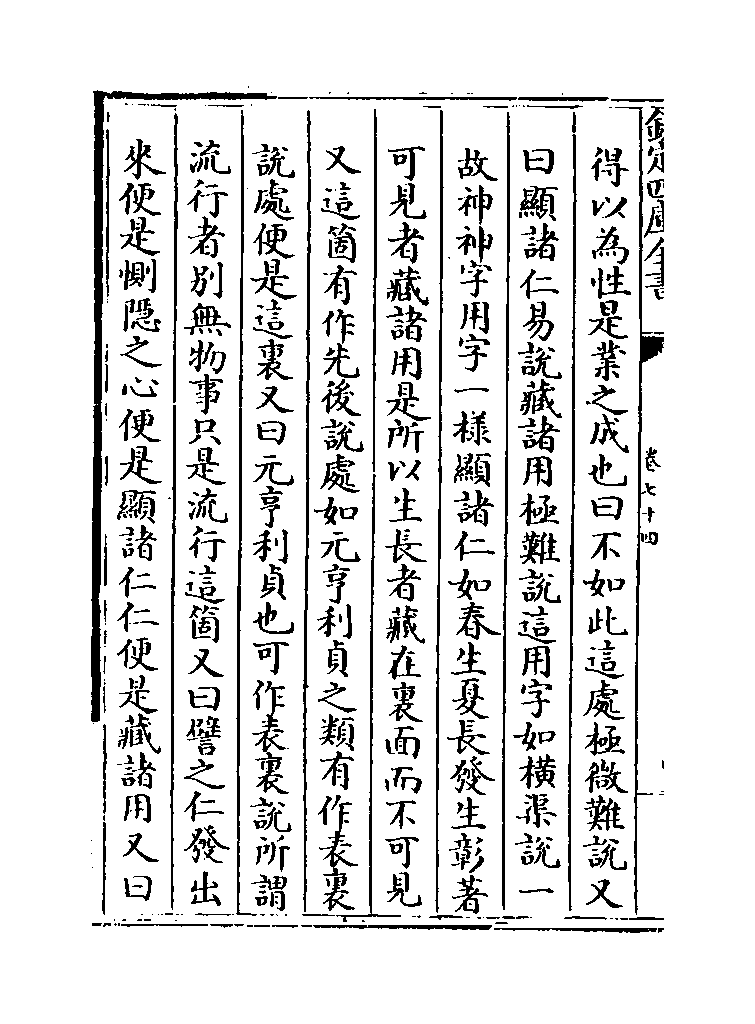 欽定四庫全書
卷七十四
得以為性是業之成也曰不如此這處極微難說又
曰顯諸仁易說藏諸用極難說這用字如橫渠說一
故神神字用字一様顯諸仁如春生夏長發生彰著
可見者藏諸用是所以生長者藏在裏面而不可見
又這箇有作先後說處如元亨利貞之類有作表裏
說處便是這裏又曰元亨利貞也可作表裏說所謂
流行者别無物事只是流行這箇又曰譬之仁發出
來便是惻隠之心便是顯諸仁仁便是藏諸用又曰